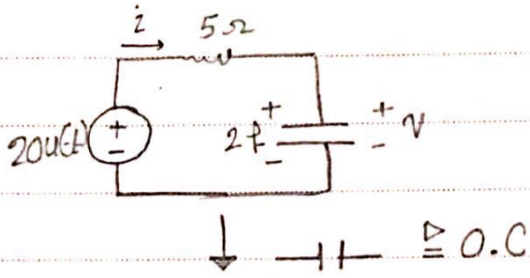 i 5Ω
20u(t) + - 2f + - + - v
≜ O.C